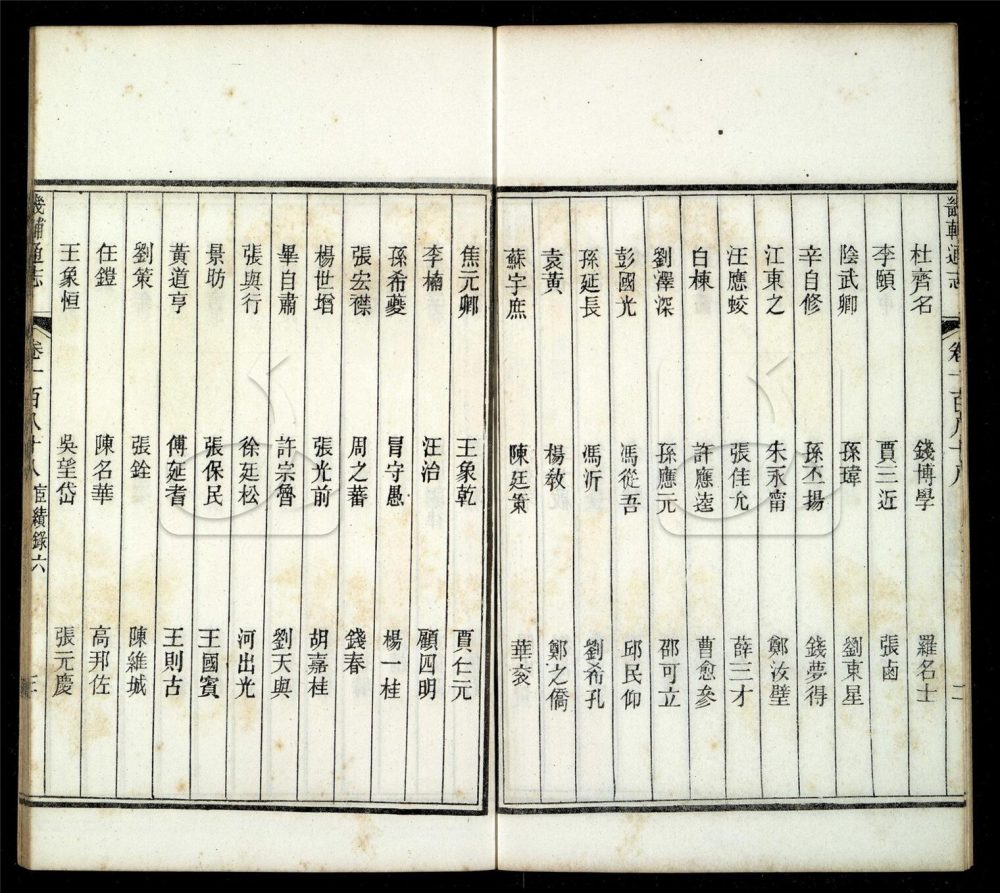 畿輔通志 卷一百八十八 二
杜齊名 錢博學 羅名士
李頤 賈三近 張鹵
陰武卿 孫瑋 劉東星
辛自修 孫丕揚 錢夢得
江東之 朱永甯 鄭汝璧
汪應蛟 張佳允 薛三才
白棟 許應逵 曹愈參
劉澤深 孫應元 邵可立
彭國光 馮從吾 邱民仰
孫延長 馮沂 劉希孔
袁黃 楊敎 鄭之僑
蘇宇庶 陳廷策 華衮
焦元卿 王象乾 賈仁元
李楠 汪治 顧四明
孫希夔 冒守愚 楊一桂
張宏襟 周之蕃 錢春
楊世增 張光前 胡嘉桂
畢自肅 許宗魯 劉天與
張與行 徐廷松 河出光
景昉 張保民 王國賓
黃道亨 傅延耆 王則古
劉策 張銓 陳維城
任鎧 陳名華 高邦佐
王象恒 吳望岱 張元慶
畿輔通志 卷一百八十八 宦績錄六